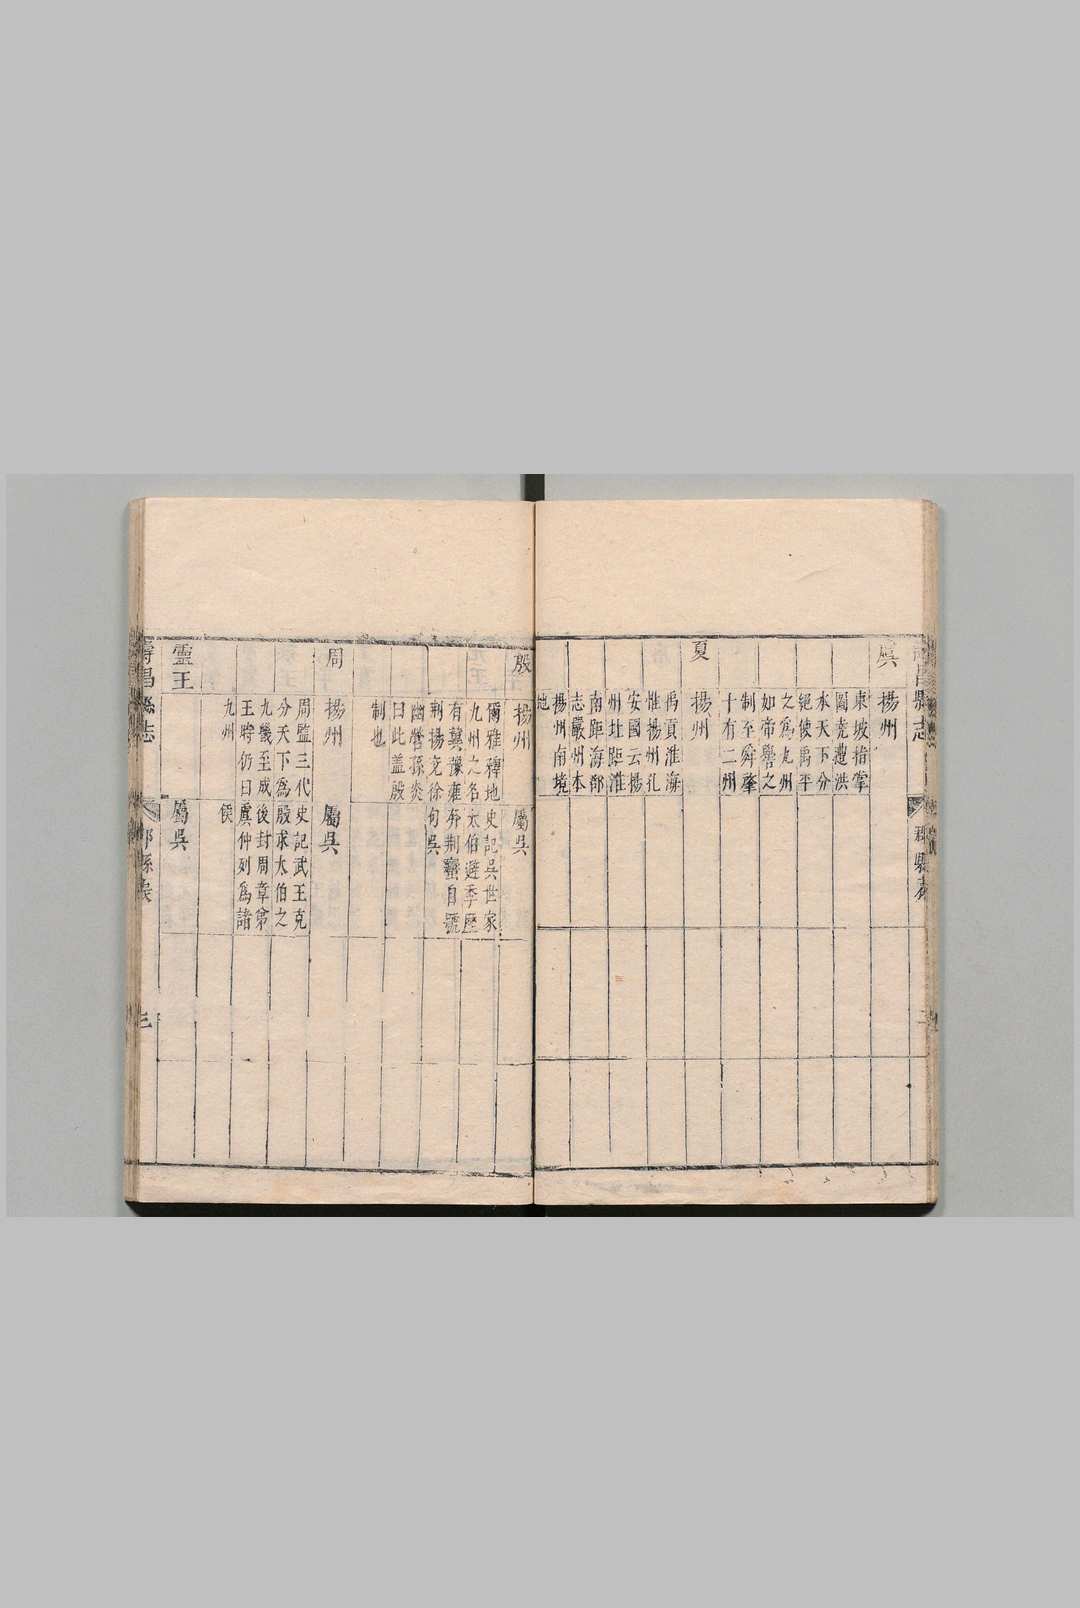 昌縣志
郡縣表
二
虞
揚州
東坡指掌
圖堯遭洪
水天下分
絕使禹平
之爲九州
如帝嚳之
制至舜肇
十有二州
夏
揚州
禹貢淮海
惟揚州孔
安國云楊
州北距淮
南距海郡
志嚴州本
揚州南境
地
殷
揚州
爾雅釋地
九州之名
有冀豫雍
荆揚兗徐
幽營孫炎
曰此蓋殷
制也
屬吳
史記吳世家
太伯避季歷
奔荆蠻自號
句吳
周
揚州
周監三代
分天下爲
九畿至成
王時仍曰
九州
屬吳
史記武王克
殷求太伯之
後封周章第
虞仲列爲諸
侯
靈王
屬吳
壽昌縣志
郡縣表
三